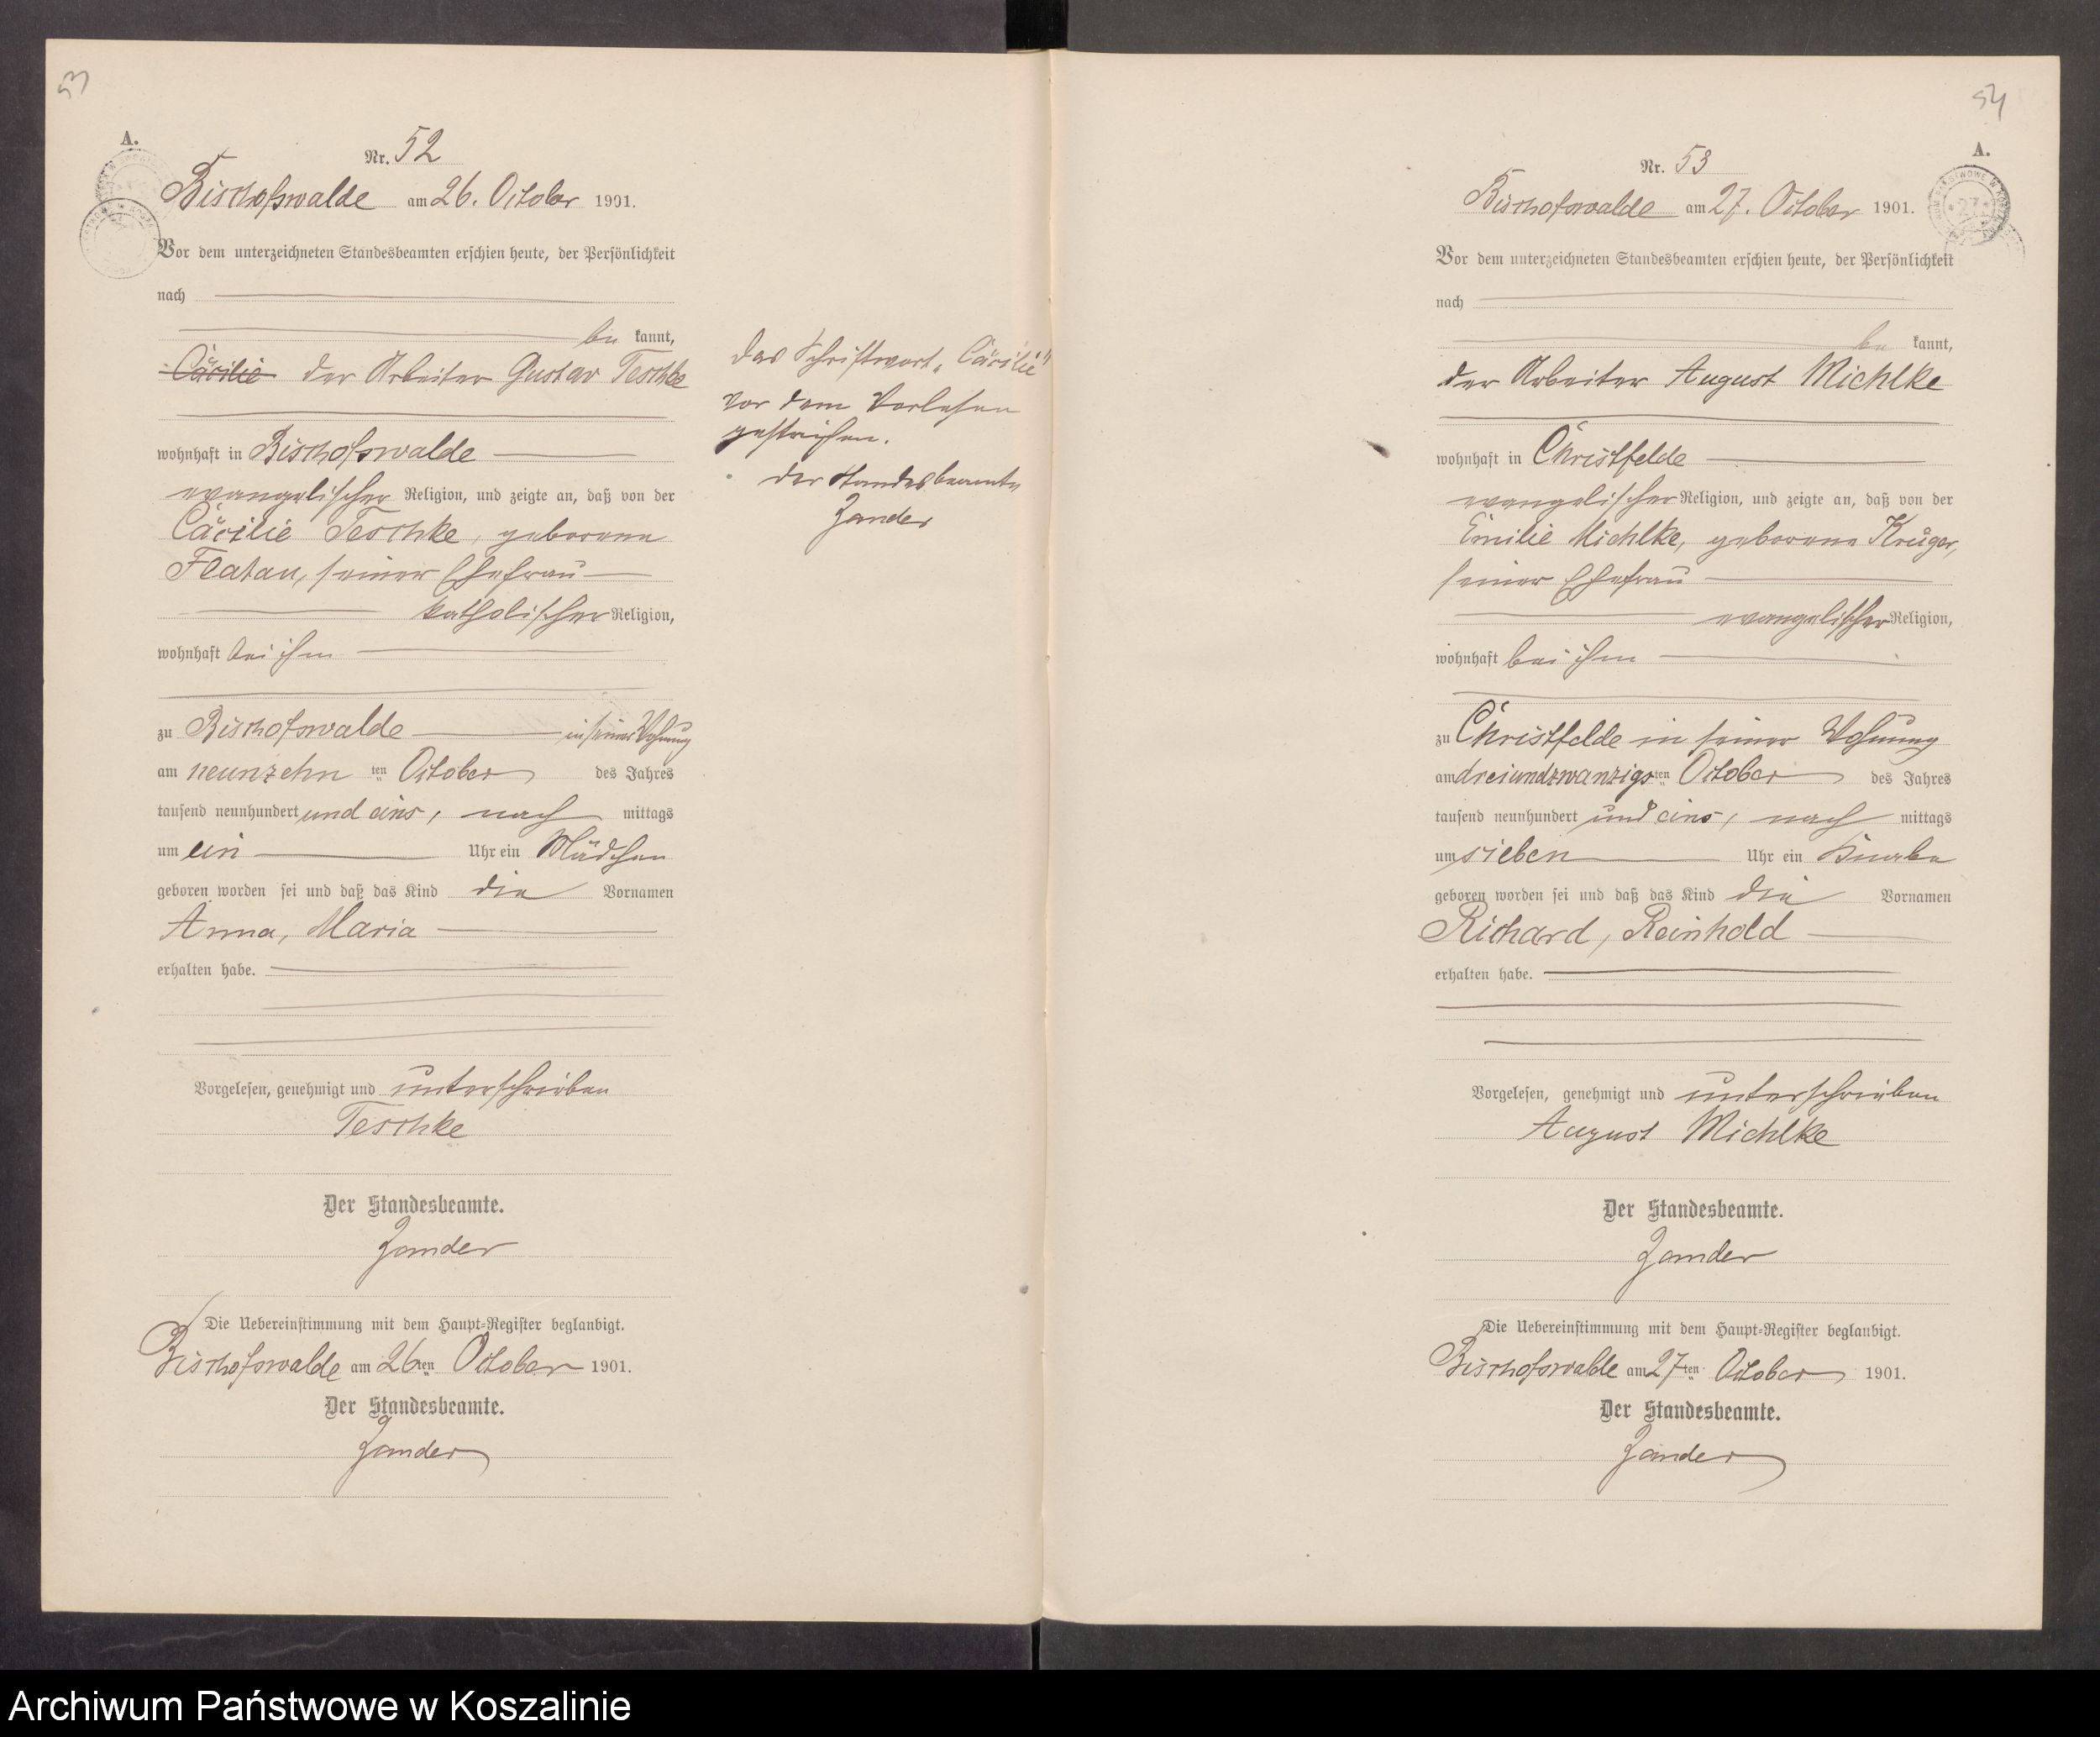 53
A.
Nr. 52
Bischofswalde am 26. October 1901.
Vor dem unterzeichneten Standesbeamten erschien heute, der Persönlichkeit
nach
be kannt,
Cäcilie der Arbeiter Gustav Teschke
wohnhaft in Bischofswalde
evangelischer Religion, und zeigte an, daß von der
Cäcilie Teschke, geborene
Flatau, seiner Ehefrau
katholischer Religion,
wohnhaft bei ihm
zu Bischofswalde in seiner Wohnung
am neunzehn ten October des Jahres
tausend neunhundert und eins, nach mittags
um ein Uhr ein Mädchen
geboren worden sei und daß das Kind die Vornamen
Anna, Maria
erhalten habe.
Vorgelesen, genehmigt und unterschrieben
Teschke
Der Standesbeamte.
Zander
Die Uebereinstimmung mit dem Haupt-Register beglaubigt.
Bischofswalde am 26ten October 1901.
Der Standesbeamte.
Zander
Das Schriftwort „Cäcilie"
vor dem Vorlesen
gestrichen.
Der Standesbeamte
Zander
54
A.
Nr. 53
Bischofswalde am 27. October 1901.
Vor dem unterzeichneten Standesbeamten erschien heute, der Persönlichkeit
nach
be kannt,
der Arbeiter August Michlke
wohnhaft in Christfelde
evangelischer Religion, und zeigte an, daß von der
Emilie Michlke, geborene Krüger,
seiner Ehefrau
evangelischer Religion,
wohnhaft bei ihm
zu Christfelde in seiner Wohnung
am dreiundzwanzigsten October des Jahres
tausend neunhundert und eins, nach mittags
um sieben Uhr ein Knabe
geboren worden sei und daß das Kind die Vornamen
Richard, Reinhold
erhalten habe.
Vorgelesen, genehmigt und unterschrieben
August Michlke
Der Standesbeamte.
Zander
Die Uebereinstimmung mit dem Haupt-Register beglaubigt.
Bischofswalde am 27ten October 1901.
Der Standesbeamte.
Zander
Archiwum Państwowe w Koszalinie